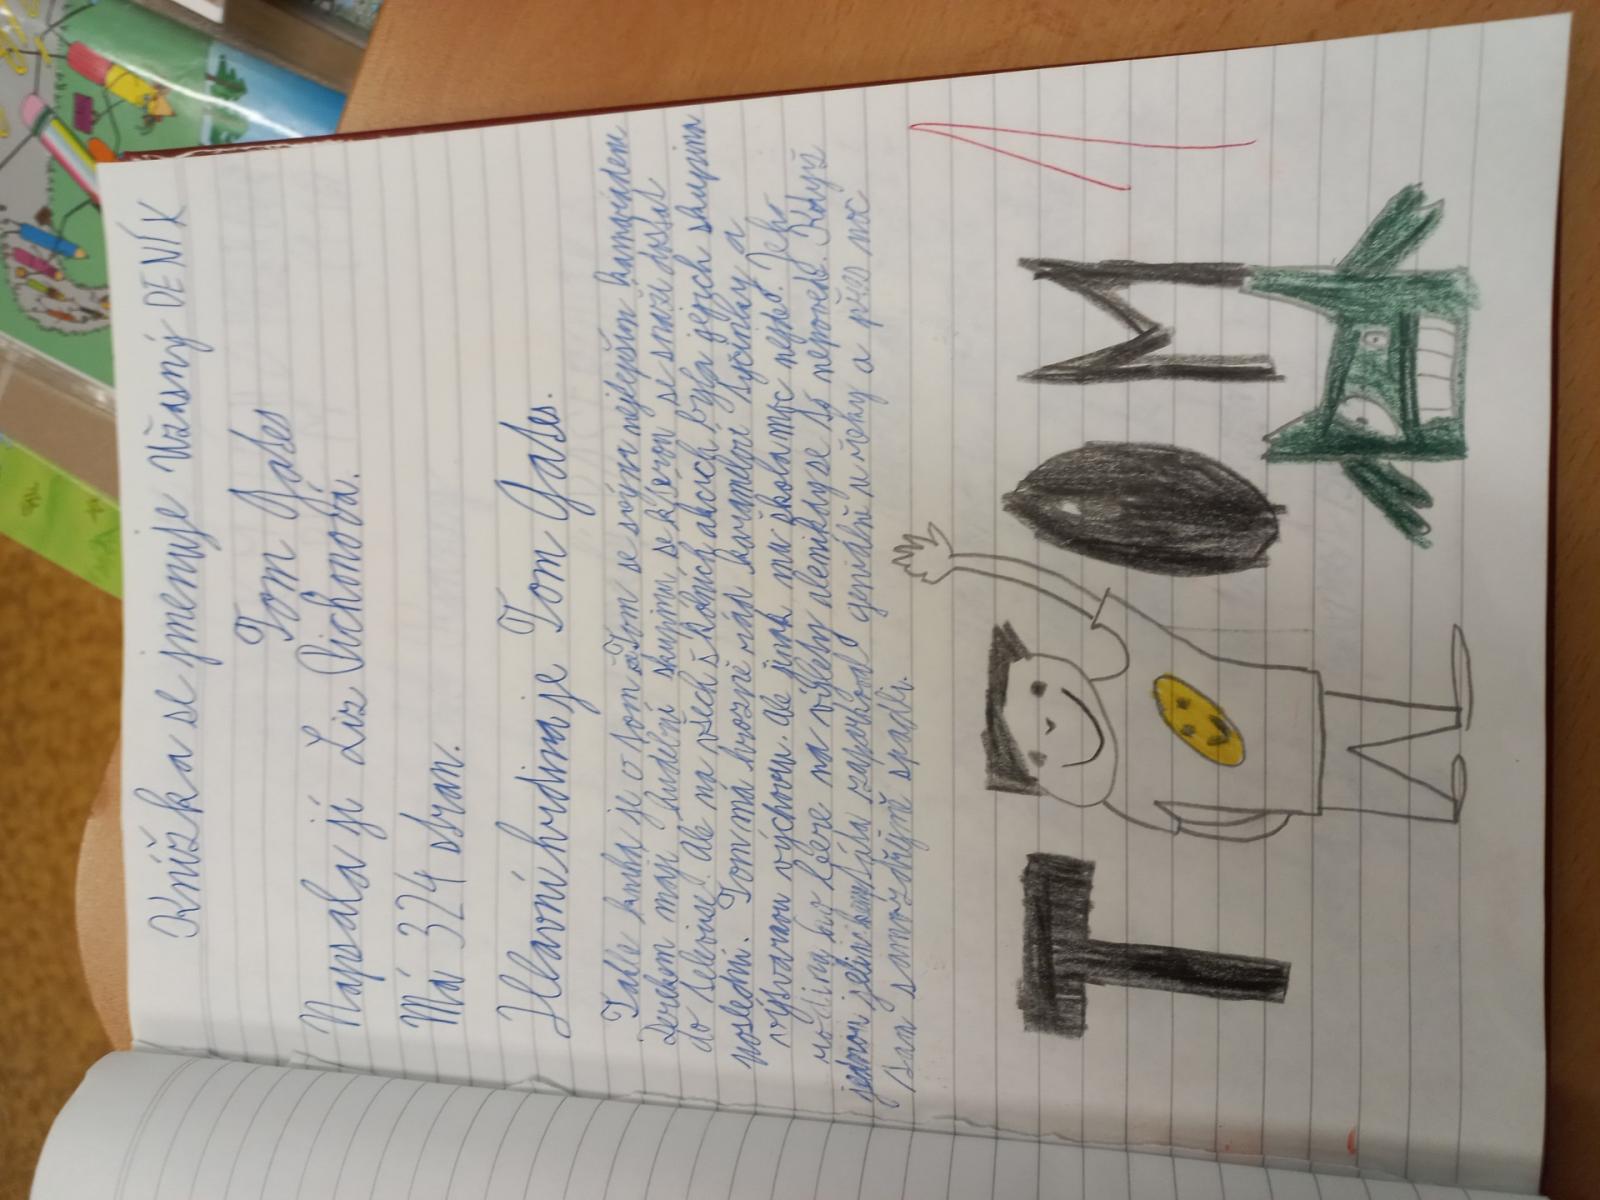 Knížka se jmenuje Užasný DENÍK
Tom Gates
Napsala ji Liz Pichonová.
Má 324 stran.
Hlavní hrdina je Tom Gates.
Tahle kniha je o tom Tom se svým nejlepším kamarádem
Derekem mají hudební skupinu, se kterou se snaží dostat
do televize. Ale na všech školních akcích byla jejich skupina
poslední. Tom má hrozně rád karamelové tyčinky a
výtvarnou výchovu. Ale jinak mu škola moc nejde. Jeho
rodina ho bere na výlety ale nikdy se to nepovede. Když
jednou jeli kempovat táta zaparkoval geniálně u řeky a přes noc
stan samozřejmě spadl.
1
TOM